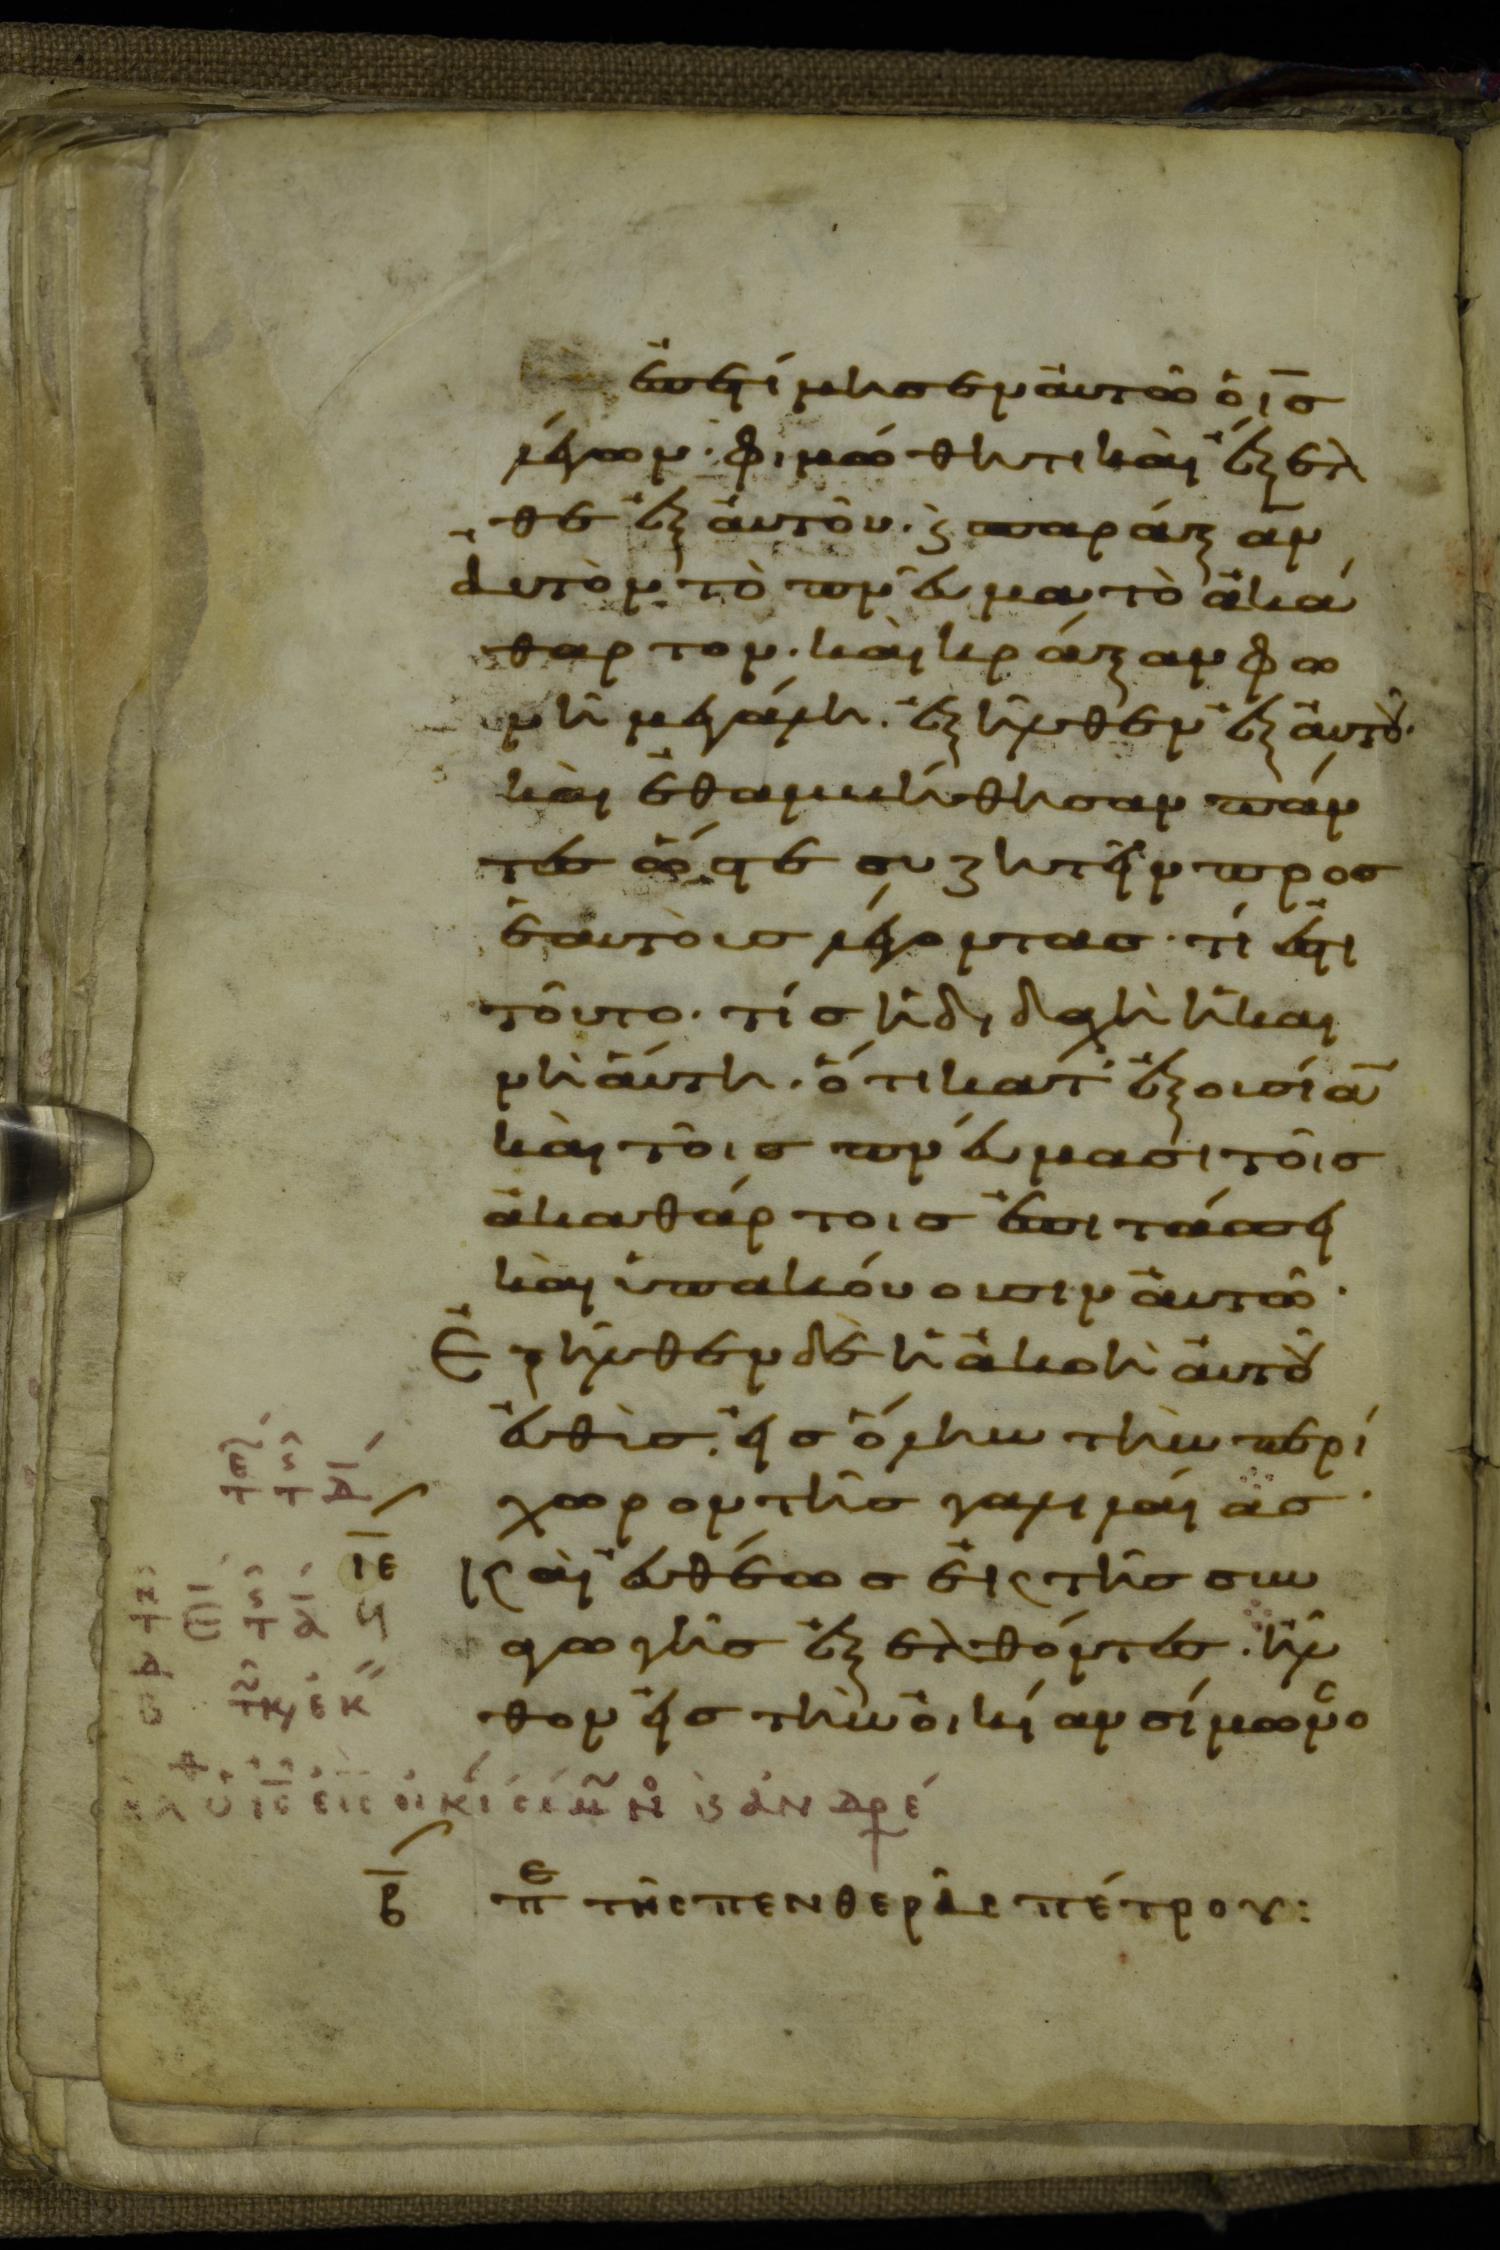 ἐπετίμησεν αὐτῶ ὁ ις
λέγων· φιμώθητι καὶ ἔξελ
θε ἐξ αὐτοῦ. ϗ σπαράξαν
αὐτὸν τὸ πνεῦμα τὸ ἀκά
θαρτον. καὶ κράξαν φω
νῆ μεγάλη. ἐξῆλθεν ἐξ αὐτοῦ.
καὶ ἐθαμβήθησαν πάν
τες ὥστε συζητεῖν προς
ἑαυτοὺς λέγοντας· τί ἐστι
τοῦτο. τίς ἡ διδαχὴ ἡ και
νὴ αὕτη. ὅτι κατ' ἐξουσίᾱ
καὶ τοῖς πνεύμασι τοῖς
ἀκαθάρτοις ἐπιτάσσει
καὶ ὑπακούουσιν αὐτῶ·
Ἐξῆλθεν δὲ ἡ ἀκοὴ αὐτοῦ
εὐθὺς εἰς ὅλην τὴν περί
χωρον τῆς γαλιλαίας·
ιε Καὶ εὐθέως ἐκ τῆς συν
αγωγῆς ἐξελθόντες. ἦλ
θον εἰς τὴν οἰκίαν σίμωνο
β πε τῆς πενθερᾶς πέτρου: